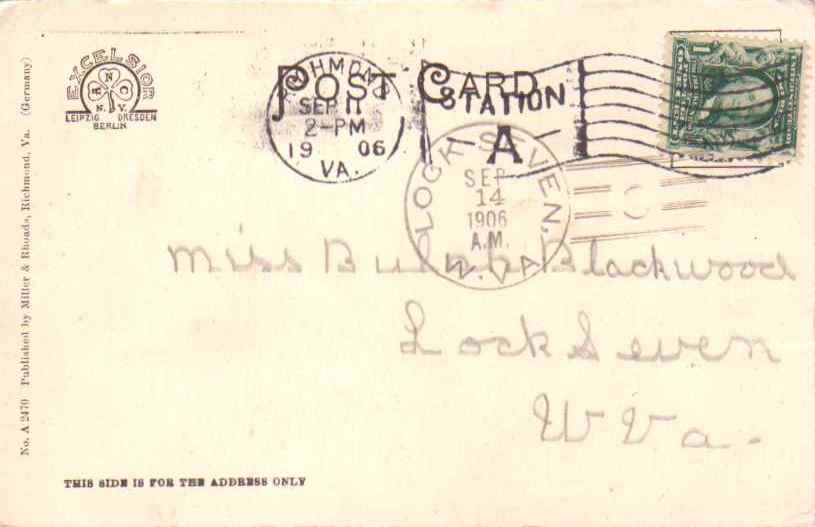 EXCELSIOR
R N C
N. V.
LEIPZIG DRESDEN
BERLIN
POST CARD
RICHMOND
SEP 11
2-PM
19 06
VA.
STATION
A
1
LOCK SEVEN,
SEP
14
1906
A.M.
W. VA.
Miss Blackwood
Lock Seven
W Va.
No. A 2470 Published by Miller & Rhoads, Richmond, Va. (Germany)
THIS SIDE IS FOR THE ADDRESS ONLY